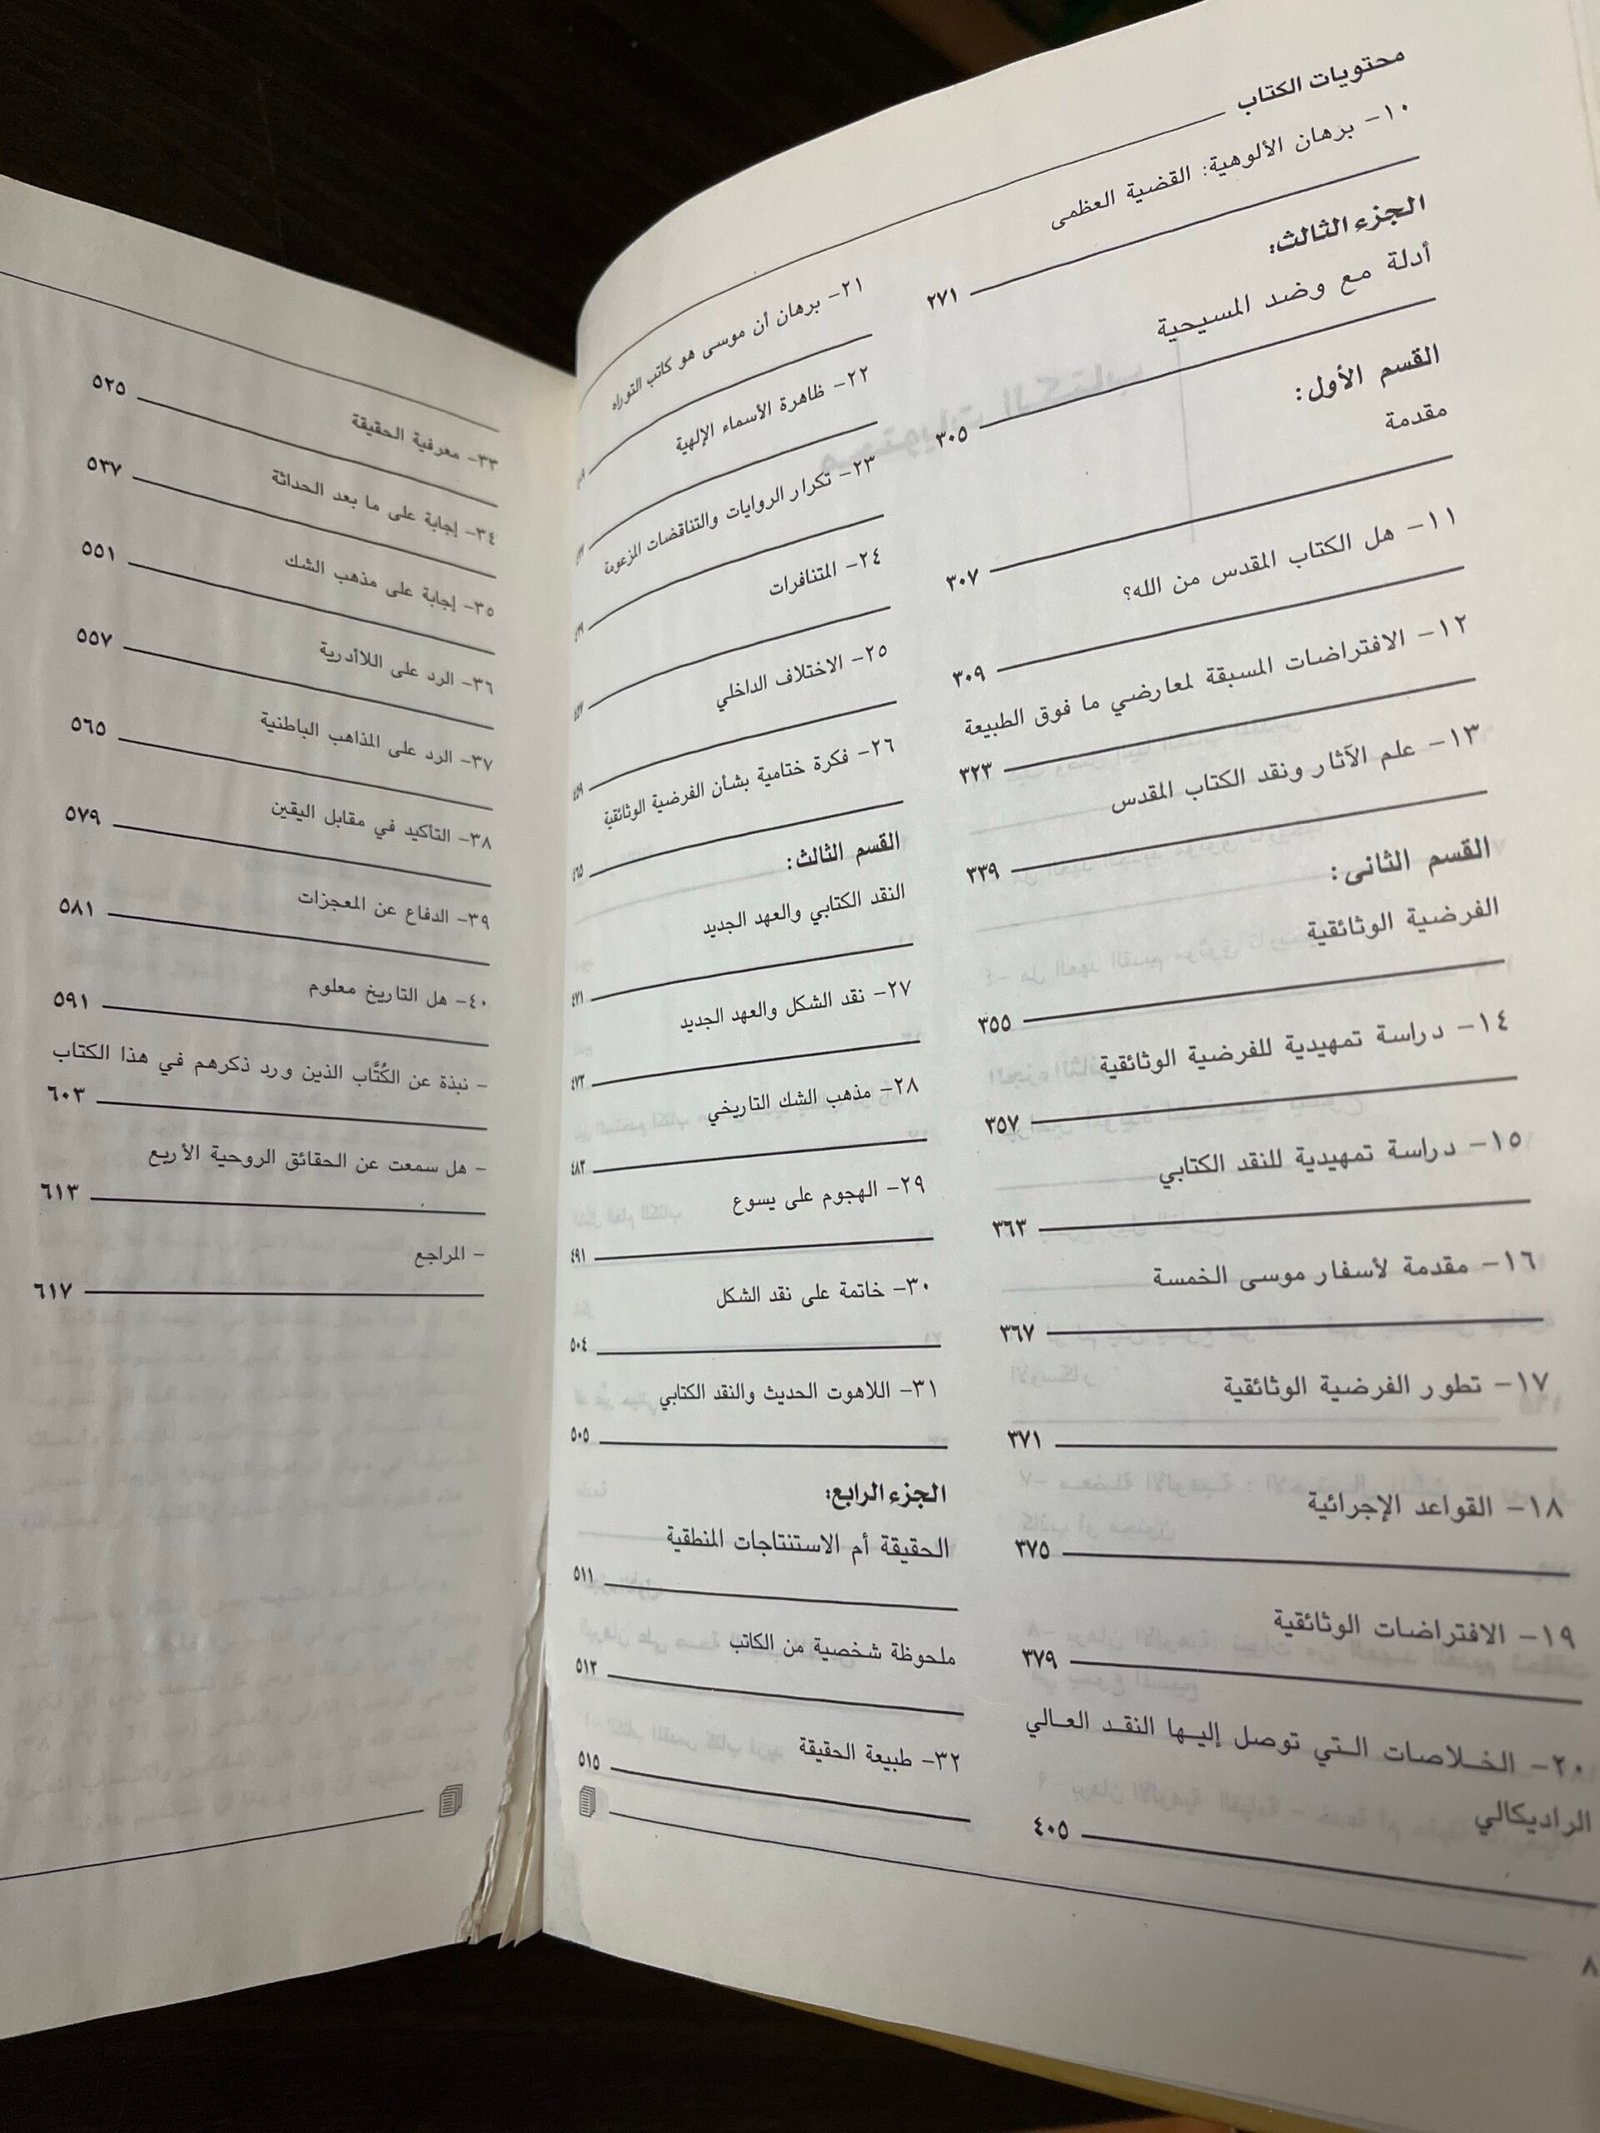 محتويات الكتاب
١٠- برهان الألوهية: القضية العظمى
٢٧١
الجزء الثالث:
أدلة مع وضد المسيحية
٣٠٥
القسم الأول:
مقدمة
٣٠٧
١١- هل الكتاب المقدس من الله؟
٣٠٩
١٢- الافتراضات المسبقة لمعارضي ما فوق الطبيعة
٣٢٣
١٣- علم الآثار ونقد الكتاب المقدس
٣٣٩
القسم الثانى:
الفرضية الوثائقية
٣٥٥
١٤- دراسة تمهيدية للفرضية الوثائقية
٣٥٧
١٥- دراسة تمهيدية للنقد الكتابي
٣٦٣
١٦- مقدمة لأسفار موسى الخمسة
٣٦٧
١٧- تطور الفرضية الوثائقية
٣٧١
١٨- القواعد الإجرائية
٣٧٥
١٩- الافتراضات الوثائقية
٣٧٩
٢٠- الخـلاصات الـتي توصل إليـها النقـد العـالي
الراديكالي
٤٠٥
٢١- برهان أن موسى هو كاتب التوراه
٢٢- ظاهرة الأسماء الإلهية
٢٣- تكرار الروايات والتناقضات المزعومة
٢٤- المتنافرات
٢٥- الاختلاف الداخلي
٤٥٩
٢٦- فكرة ختامية بشأن الفرضية الوثائقية
٤٦٥
القسم الثالث:
النقد الكتابي والعهد الجديد
٤٧١
٢٧- نقد الشكل والعهد الجديد
٤٧٣
٢٨- مذهب الشك التاريخي
٤٨٣
٢٩- الهجوم على يسوع
٤٩١
٣٠- خاتمة على نقد الشكل
٥٠٤
٣١- اللاهوت الحديث والنقد الكتابي
٥٠٥
الجزء الرابع:
الحقيقة أم الاستنتاجات المنطقية
٥١١
ملحوظة شخصية من الكاتب
٥١٣
٣٢- طبيعة الحقيقة
٥١٥
٨
٣٣- معرفية الحقيقة
٥٢٥
٣٤- إجابة على ما بعد الحداثة
٥٣٧
٣٥- إجابة على مذهب الشك
٥٥١
٣٦- الرد على اللاأدرية
٥٥٧
٣٧- الرد على المذاهب الباطنية
٥٦٥
٣٨- التأكيد في مقابل اليقين
٥٧٩
٣٩- الدفاع عن المعجزات
٥٨١
٤٠- هل التاريخ معلوم
٥٩١
- نبذة عن الكُتَّاب الذين ورد ذكرهم في هذا الكتاب
٦٠٣
- هل سمعت عن الحقائق الروحية الأربع
٦١٣
- المراجع
٦١٧